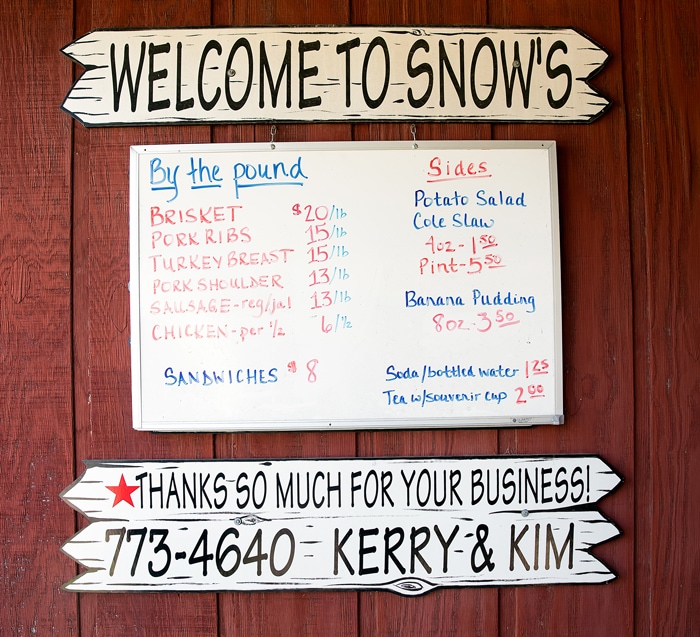 WELCOME TO SNOW'S
By the pound
BRISKET $20/lb
PORK RIBS 15/lb
TURKEY BREAST 15/lb
PORK SHOULDER 13/lb
SAUSAGE-reg/jal 13/lb
CHICKEN-per ½ 6/½
SANDWICHES $8
Sides
Potato Salad
Cole Slaw
4oz-1.50
Pint-5.50
Banana Pudding
8oz-3.50
Soda/bottled water 1.25
Tea w/souvenir cup 2.00
THANKS SO MUCH FOR YOUR BUSINESS!
773-4640 KERRY & KIM